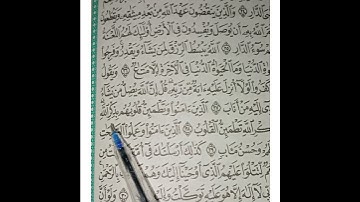 الدَّارِ ۝ وَالَّذِينَ يَنقُضُونَ عَهْدَ اللَّهِ مِن بَعْدِ مِيثَاقِهِ وَيَقْطَعُونَ
أَمَرَ اللَّهُ بِهِ أَن يُوصَلَ وَيُفْسِدُونَ فِي الْأَرْضِ أُولَٰئِكَ لَهُمُ اللَّعْنَةُ
سُوءُ الدَّارِ ۝ اللَّهُ يَبْسُطُ الرِّزْقَ لِمَن يَشَاءُ وَيَقْدِرُ وَفَرِحُوا
الدُّنْيَا وَمَا الْحَيَوٰةُ الدُّنْيَا فِي الْآخِرَةِ إِلَّا مَتَاعٌ ۝ وَيَقُولُ
كَفَرُوا لَوْلَا أُنزِلَ عَلَيْهِ ءَايَةٌ مِّن رَّبِّهِ قُلْ إِنَّ اللَّهَ يُضِلُّ مَن يَشَاءُ
إِلَيْهِ مَنْ أَنَابَ ۝ الَّذِينَ ءَامَنُوا وَتَطْمَئِنُّ قُلُوبُهُم بِذِكْرِ اللَّهِ
اللَّهِ تَطْمَئِنُّ الْقُلُوبُ ۝ الَّذِينَ ءَامَنُوا وَعَمِلُوا
وَحُسْنُ مَـَٔابٍ ۝ كَذَٰلِكَ أَرْسَلْنَٰكَ فِي أُمَّةٍ
لِّتَتْلُوَا عَلَيْهِمُ الَّذِي أَوْحَيْنَا إِلَيْكَ وَهُمْ يَكْفُرُونَ بِالرَّحْمَٰنِ
لَا إِلَٰهَ إِلَّا هُوَ عَلَيْهِ تَوَكَّلْتُ وَإِلَيْهِ مَتَابِ ۝ وَلَوْ أَنَّ